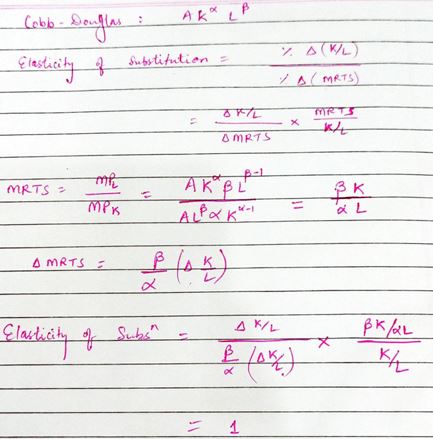 Cobb-Douglas : A K^α L^β
Elasticity of Substitution = % Δ (K/L) / % Δ (MRTS)
= Δ K/L / Δ MRTS × MRTS / K/L
MRTS = MP_L / MP_K = A K^α β L^(β-1) / A L^β α K^(α-1) = β K / α L
Δ MRTS = β/α (Δ K/L)
Elasticity of Subsⁿ = Δ K/L / β/α (Δ K/L) × βK/αL / K/L
= 1